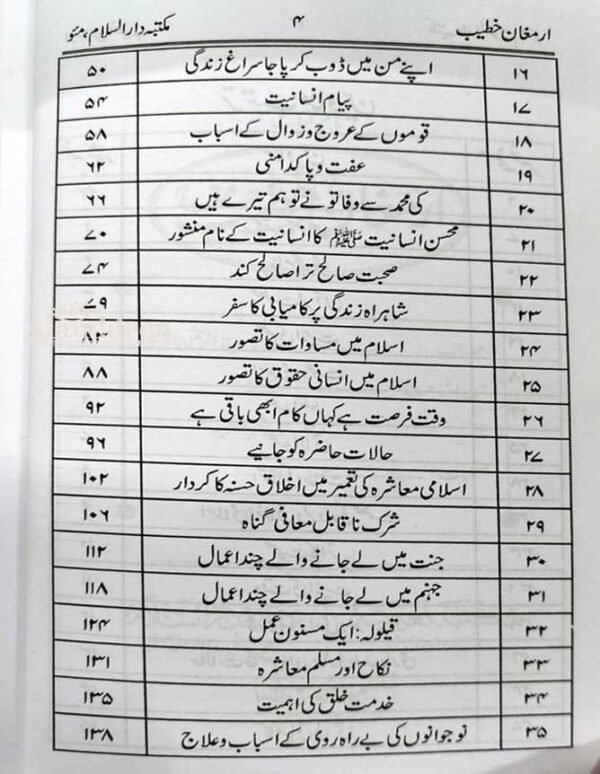 ارمغان خطیب ۴ مکتبہ دارالسلام، مئو
۱۶ اپنے من میں ڈوب کر پا جا سراغ زندگی ۵۰
۱۷ پیام انسانیت ۵۴
۱۸ قوموں کے عروج و زوال کے اسباب ۵۸
۱۹ عفت و پاکدامنی ۶۲
۲۰ کی محمد سے وفا تو نے تو ہم تیرے ہیں ۶۶
۲۱ محسن انسانیت ﷺ کا انسانیت کے نام منشور ۷۰
۲۲ صحبت صالح ترا صالح کند ۷۴
۲۳ شاہراہ زندگی پر کامیابی کا سفر ۷۹
۲۴ اسلام میں مساوات کا تصور ۸۳
۲۵ اسلام میں انسانی حقوق کا تصور ۸۸
۲۶ وقت فرصت ہے کہاں کام ابھی باقی ہے ۹۲
۲۷ حالات حاضرہ کو جانیے ۹۶
۲۸ اسلامی معاشرہ کی تعمیر میں اخلاق حسنہ کا کردار ۱۰۲
۲۹ شرک ناقابل معافی گناہ ۱۰۶
۳۰ جنت میں لے جانے والے چند اعمال ۱۱۲
۳۱ جہنم میں لے جانے والے چند اعمال ۱۱۸
۳۲ قیلولہ: ایک مسنون عمل ۱۲۴
۳۳ نکاح اور مسلم معاشرہ ۱۳۱
۳۴ خدمت خلق کی اہمیت ۱۳۵
۳۵ نوجوانوں کی بے راہ روی کے اسباب و علاج ۱۳۸